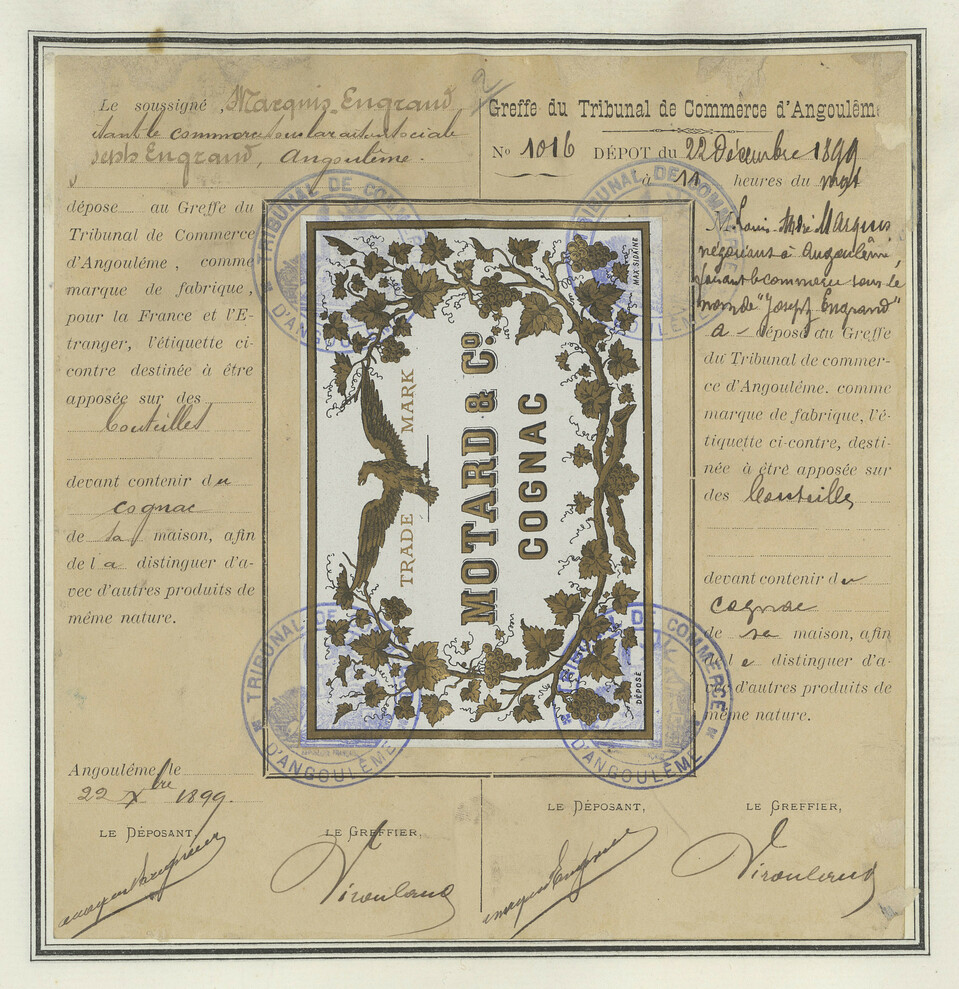 Le soussigné, Marquis Engrand,
le commerce sous la raison sociale
Joseph Engrand, Angoulême.
dépose au Greffe du
Tribunal de Commerce
d'Angoulême, comme
marque de fabrique,
pour la France et l'E-
tranger, l'étiquette ci-
contre destinée à être
apposée sur des
bouteilles
devant contenir du
cognac
de sa maison, afin
de la distinguer d'a-
vec d'autres produits de
même nature.
Angoulême, le
22 Xbre 1899.
LE DÉPOSANT,
LE GREFFIER,
Greffe du Tribunal de Commerce d'Angoulême
No 1016 DÉPOT du 22 Décembre 1899
à 11 heures du
M. Louis André Marquis
négociant à Angoulême,
faisant le commerce sous le
nom de "Joseph Engrand"
a déposé au Greffe
du Tribunal de commer-
ce d'Angoulême. comme
marque de fabrique, l'é-
tiquette ci-contre, desti-
née à être apposée sur
des bouteilles
devant contenir du
cognac
de sa maison, afin
de le distinguer d'a-
vec d'autres produits de
même nature.
LE DÉPOSANT,
LE GREFFIER,
TRADE MARK
MOTARD & Co.
COGNAC
MAX SIDAINE
DÉPOSÉ
TRIBUNAL DE COMMERCE
D'ANGOULÊME
TRIBUNAL DE COMMERCE
D'ANGOULÊME
TRIBUNAL DE COMMERCE
D'ANGOULÊME
TRIBUNAL DE COMMERCE
D'ANGOULÊME